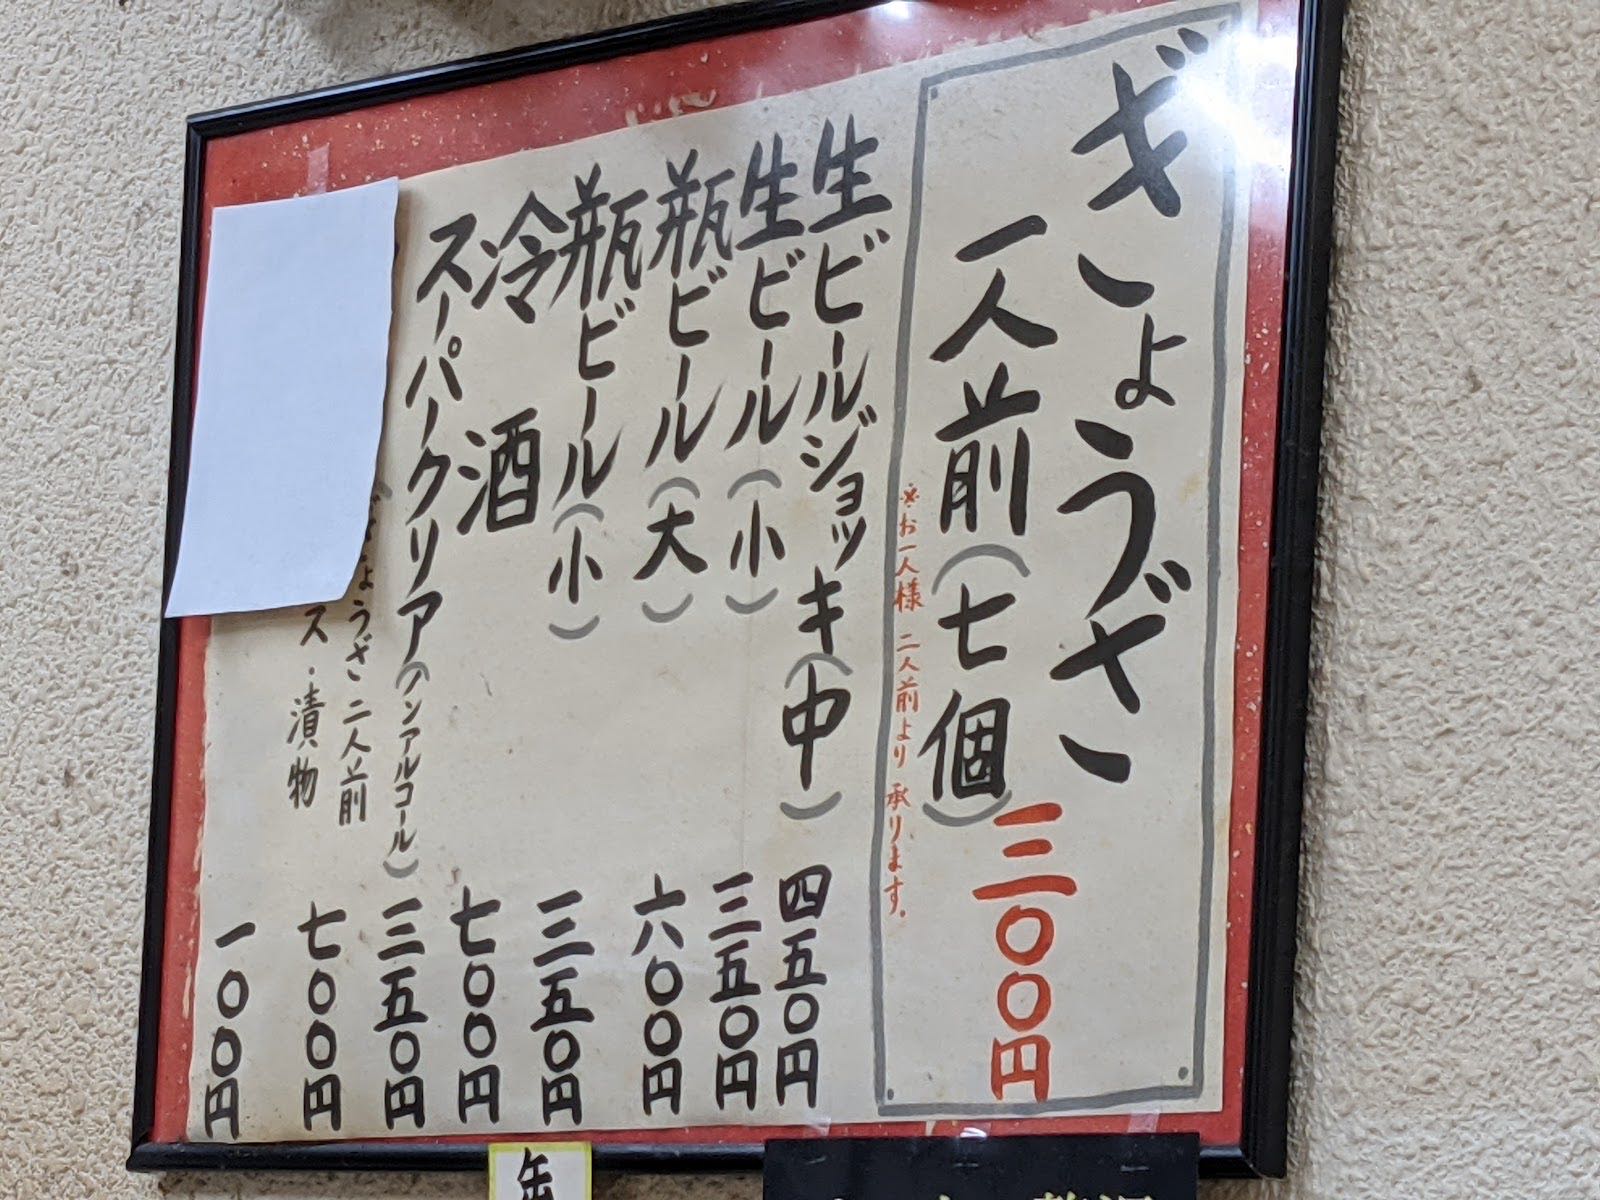 ぎょうざ
一人前(七個)三〇〇円
※お一人様 二人前より承ります。
生ビールジョッキ(中) 四五〇円
生ビール(小) 三五〇円
瓶ビール(大) 六〇〇円
瓶ビール(小) 三五〇円
冷酒 七〇〇円
スーパークリア(ノンアルコール) 三五〇円
ぎょうざ二人前
ス・漬物 七〇〇円
一〇〇円
缶